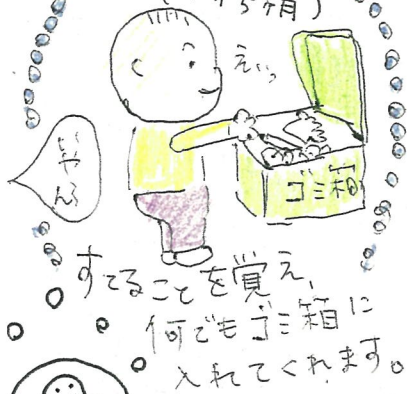 5ヶ月)
えいっ
ゴミ箱
いやんっ
すてることを覚え、
何でもゴミ箱に
入れてくれます。